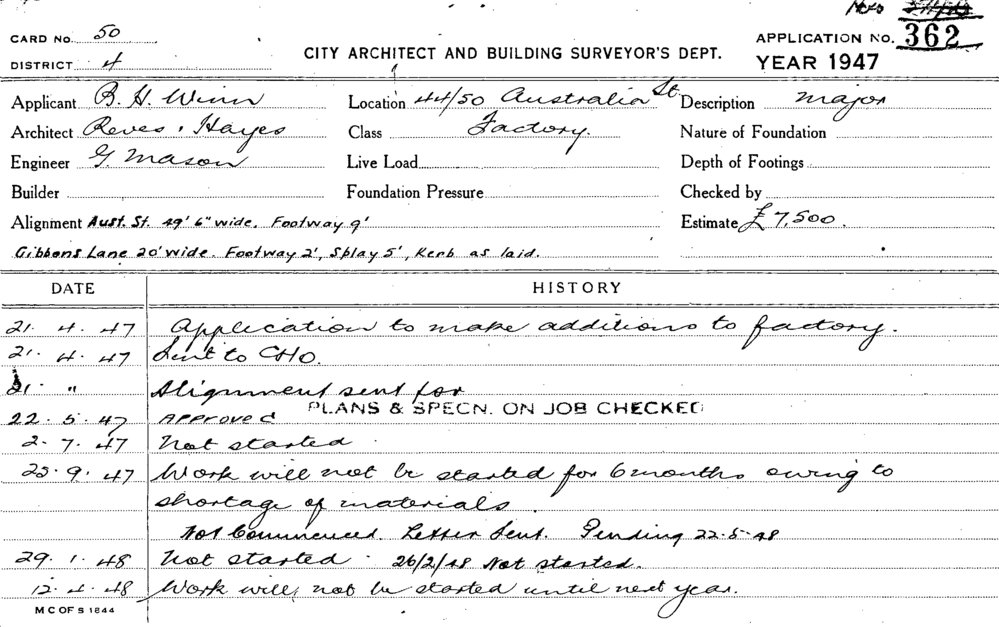 CARD NO. 50
DISTRICT 4
CITY ARCHITECT AND BUILDING SURVEYOR'S DEPT.
APPLICATION NO. 362
YEAR 1947
Applicant B. H. Winn Location 44/50 Australia St. Description major
Architect Reves & Hayes Class Factory. Nature of Foundation
Engineer G. Mason Live Load Depth of Footings
Builder Foundation Pressure Checked by
Alignment Aust. St. 49' 6" wide. Footway 9' Estimate £7,500.
Gibbons Lane 20' wide. Footway 2', Splay 5', Kerb as laid.
DATE HISTORY
21. 4. 47 Application to make additions to factory.
21. 4. 47 Sent to CHO.
21. " Alignment sent for
PLANS & SPECN. ON JOB CHECKED
22. 5. 47 APProved
2. 7. 47 Not started
25. 9. 47 Work will not be started for 6 months owing to
shortage of materials.
Not Commenced. Letter Sent. Pending 22-5-48
29. 1. 48 Not started. 26/2/48 Not started.
12. 4. 48 Work will not be started until next year.
M C OF S 1844